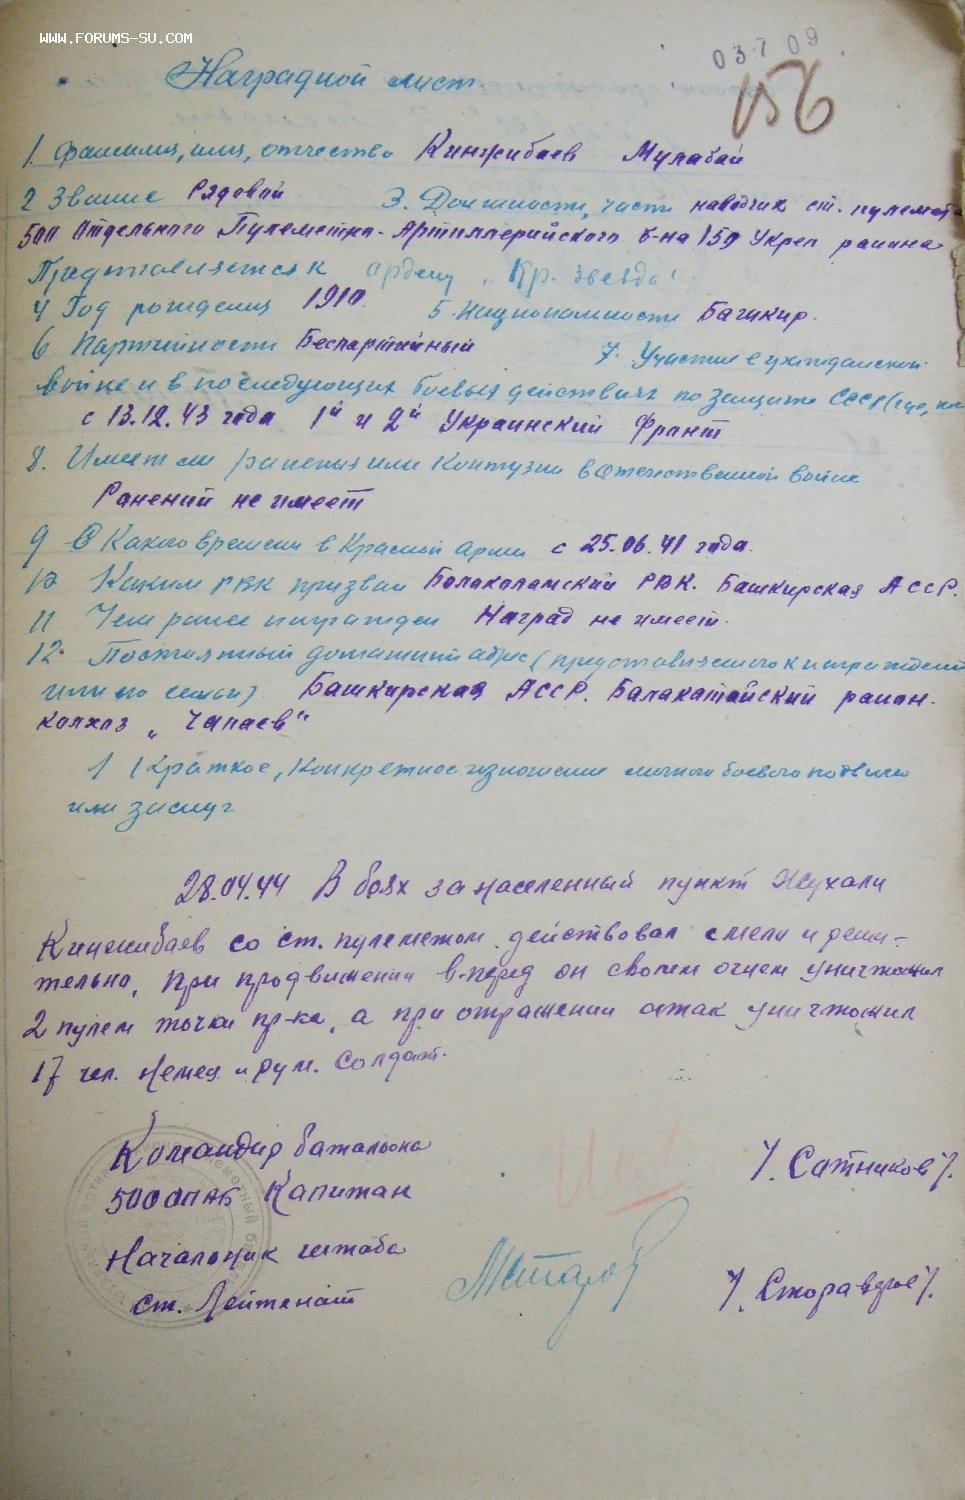 WWW.FORUMS-SU.COM
03709
156
Наградной лист
1. Фамилия, имя, отчество Кинжибаев Мулабай
2 Звание Рядовой 3. Должность, часть наводчик ст. пулемета
500 Отдельного Пулеметно-Артиллерийского б-на 159 Укреп района
Представляется к ордену „Кр. Звезда"
4 Год рождения 1910 5. Национальность Башкир.
6 Партийность Беспартийный 7. Участие в гражданской
войне и в последующих боевых действиях по защите СССР (где,
с 13.12.43 года 1й и 2й Украинский Фронт
8. Имеет ли ранения или контузии в Отечественной войне
Ранений не имеет
9 С Какого времени в Красной армии с 25.06.41 года.
10 Каким РВК призван Балакатамский РВК. Башкирская АССР.
11 Чем ранее награжден Наград не имеет.
12. Постоянный домашний адрес (представляемого к награждению
или его семьи). Башкирская АССР. Балакатайский район.
колхоз „Чапаев"
1 Краткое, конкретное изложение личного боевого подвига
или заслуг
28.04.44 В боях за населенный пункт Жухали
Кинжибаев со ст. пулеметом действовал смело и реши-
тельно, при продвижении в-перед он своим огнем уничтожил
2 пулем точки пр-ка, а при отражении атак уничтожил
17 чел. Немец и рум. солдат.
Командир батальона
500 ОПАБ Капитан /. Сотников /.
Начальник штаба
ст. Лейтенант